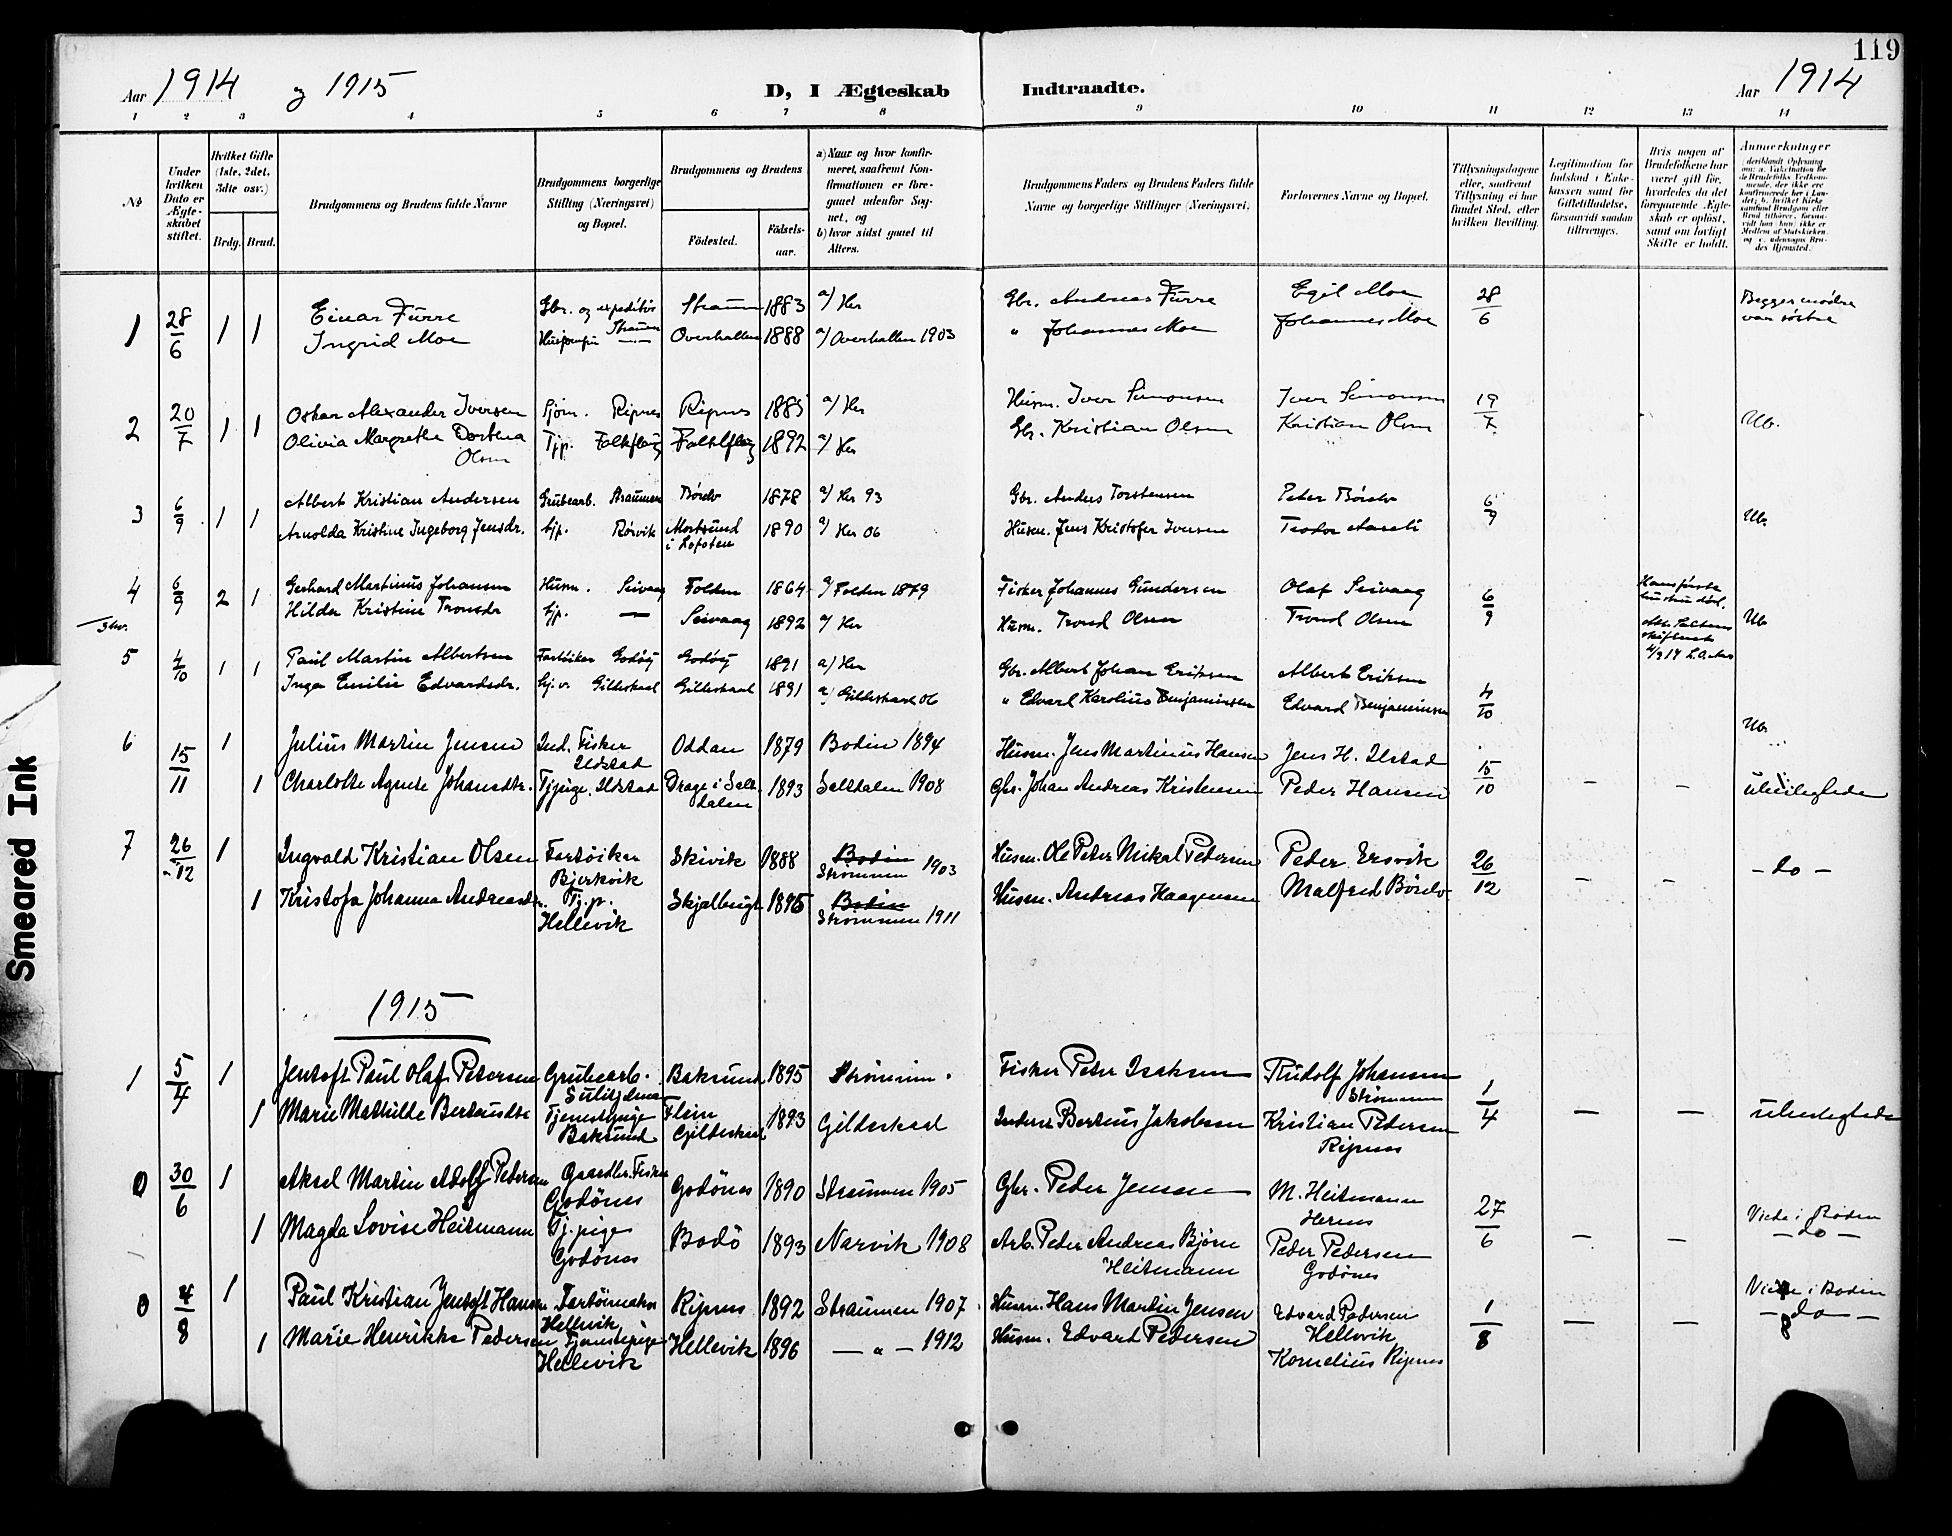 119
Aar 1914 og 1915 D, I Ægteskab Indtraadte. Aar 1914
1 2 3 4 5 6 7 8 9 10 11 12 13 14
No
Under hvilken Dato er Ægteskabet stiftet.
Hvilket Gifte (1ste, 2det, 3die osv.)
Brdg. Brud.
Brudgommens og Brudens fulde Navne
Brudgommens borgerlige Stilling (Næringsvei) og Bopæl.
Brudgommens og Brudens
Födested. Födselsaar.
a) Naar og hvor konfirmeret, saafremt Konfirmationen er foregaaet udenfor Sognet, og
b) hvor sidst gaaet til Alters.
Brudgommens Faders og Brudens Faders fulde Navne og borgerlige Stillinger (Næringsvei).
Forlovernes Navne og Bopæl.
Tillysningsdagene eller, saafremt Tillysning ei har fundet Sted, efter hvilken Bevilling.
Legitimation for Indskud i Enkekassen samt for Giftetilladelse, forsaavidt saadan tiltrænges.
Hvis nogen af Brudefolkene har været gift för, hvorledes da det foregaaende Ægteskab er oplöst, samt om lovligt Skifte er holdt.
Anmerkninger
1 28/6 1 1 Einar Furre Gbr. og expeditör Straum 1883 a/ Her Gbr. Andreas Furre Egil Moe 28/6 Begges mödre
Ingrid Moe Straum Overhallen 1888 a/ Overhallen 1903 " Johannes Moe Johannes Moe var söstre
2 20/7 1 1 Oskar Alexander Iversen Fjörn. Ripnes Ripnes 1885 a/ Her Husm. Iver Simonsen Iver Simonsen 19/7 Ub.
Olivia Margrethe Dortea Tjp. 1892 a/ Her Gbr. Kristian Olsen Kristian Olsen
Olsen
3 6/9 1 1 Albert Kristian Andersen Grubearb. Straumen 1878 a/ Her 93 Gbr. Anders Torstensen Peter 6/9 Ub.
Arnolda Kristine Ingeborg Jensdr. tjp. Börvik Mortsund i Lofoten 1890 a/ Her 06 Husm. Jens Kristofer Iversen
4 6/9 2 1 Gerhard Martinus Johansen Husm. Seivaag Folden 1864 a/ Folden 1879 Fisker Johannes Gundersen Olaf Seivaag 6/9 Hans första hustru död.
Hilda Kristine Tronsdr tjp. — Seivaag 1892 a/ Her Husm. Trond Olsen Trond Olsen Ub
5 4/10 1 1 Paul Martin Albertsen Godöy Godöy 1891 a/ Her Gbr. Albert Johan Eriksen Albert Eriksen
Inga Emilie Edvardsdr. Gildeskaal Gildeskaal 1891 a/ Gildeskaal 06 " Edvard Karolius Benjaminsen Edvard Benjaminsen 4/10 Ub.
6 15/11 1 Julius Martin Jensen Ind. Fisker Ildstad Oddan 1879 Bodin 1894 Husm. Jens Martinus Hansen Jens H. Ilstad 15/10
1 Charlotte Agnete Johansdtr. Tjpige. Ildstad Drage i Saltdalen 1893 Saltdalen 1908 Gbr. Johan Andreas Kristensen Peder Hansen – – ubeslegtede
7 26/12 1 Ingvald Kristian Olsen Fartöieier Bjerkvik Skivik 1888 Bodin Strömmen 1903 Husm. Ole Peter Mikal Pedersen Peder Ersvik 26/12 – – – do –
1 Kristofa Johanna Andreasdr. Tj.p. Hellevik 1895 Bodin Strömmen 1911 Husm. Andreas Haagensen Malfred
1915
1 5/4 1 Jentoft Paul Olaf Petersen Grubearb. Sulitjelma Baksund 1895 Strömmen. Fisker Peter Isaksen Rudolf Johansen Strömmen 1/4
1 Marie Mathilde Tjenestepige Baksund Flein Gildeskaal 1893 Gildeskaal Inders Berteus Jakobsen Kristian Pedersen Ripnes — — ubeslegtede
0 30/6 1 Aksel Martin Adolf Pedersen Gaardbr. Fisker Godönes Godönes 1890 Straumen 1905 Gbr. Peder Jensen M. Heitmann 27/6 Viede i Boden
1 Magda Lovise Heitmann Tj.pige Godönes Bodö 1893 Narvik 1908 Arb. Peder Andreas Björn Heitmann Peder Pedersen Godönes – – – do –
0 4/8 1 Paul Kristian Jentoft Hansen Hellevik Ripnes 1892 Straumen 1907 Husm. Hans Martin Jensen Edvard Pedersen Hellevik 1/8 Viede i Bodin
1 Marie Henrikke Pedersen Tjenestepige Hellevik Hellevik 1896 — " — 1912 Husm. Edvard Pedersen Kornelius Ripnes — — – do –
Smeared Ink